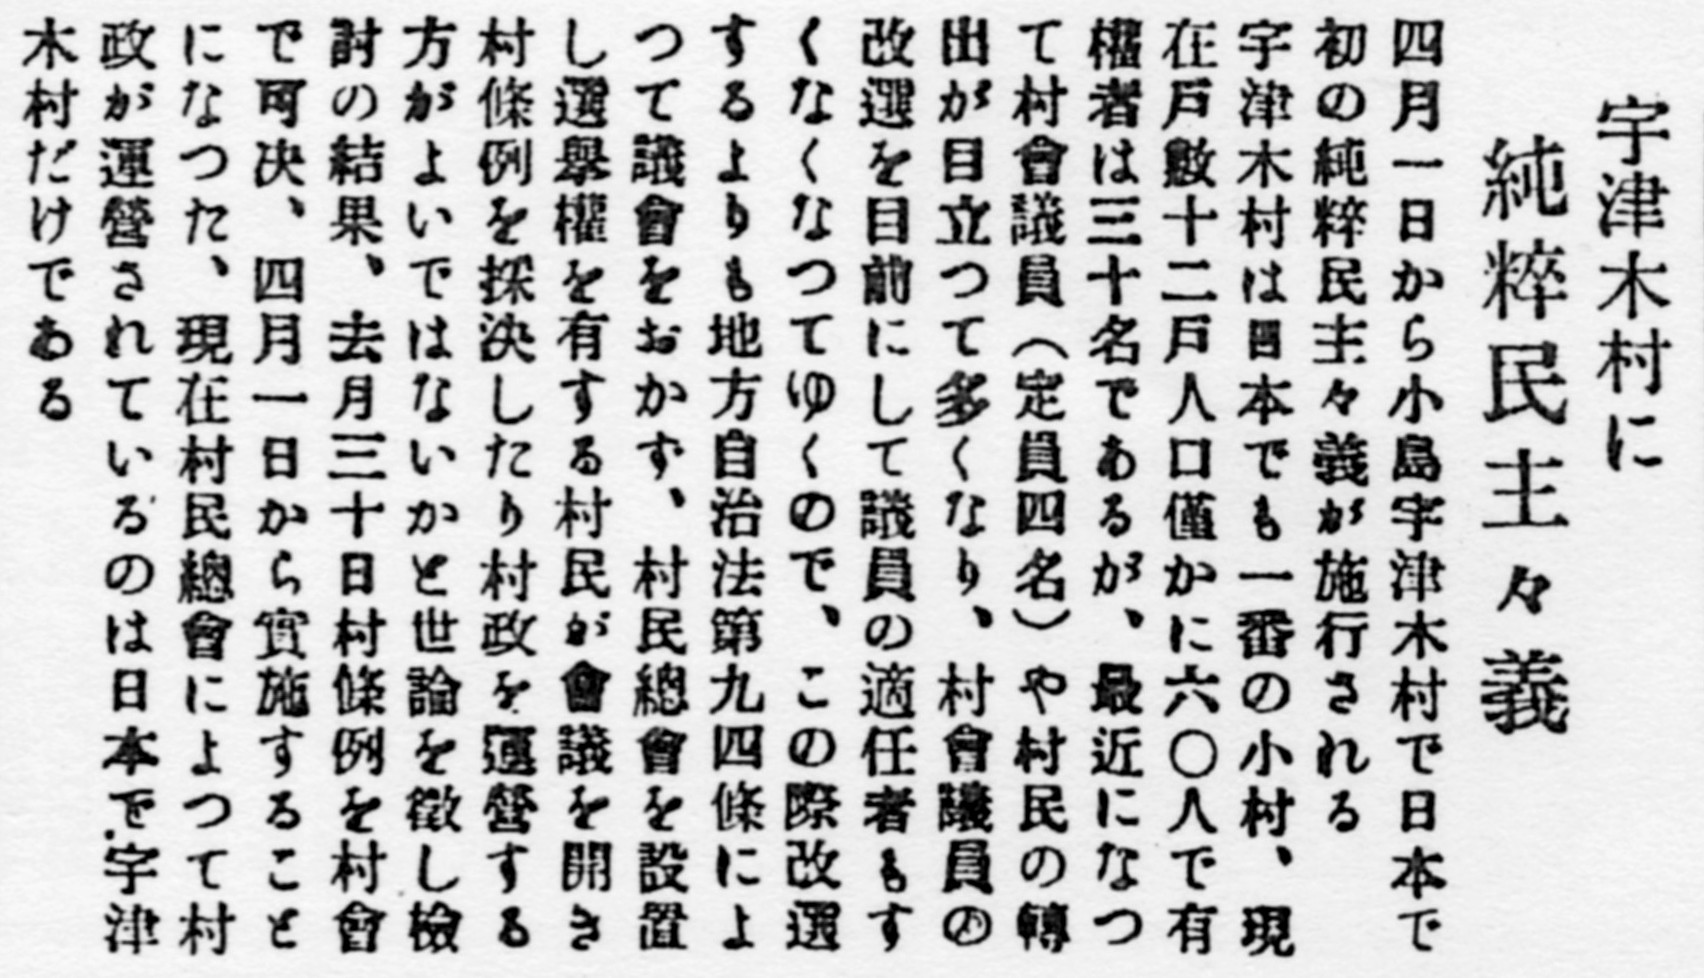 宇津木村に
純粹民主々義
四月一日から小島宇津木村で日本で
初の純粹民主々義が施行される
宇津木村は日本でも一番の小村、現
在戸數十二戸人口僅かに六〇人で有
權者は三十名であるが、最近になつ
て村會議員（定員四名）や村民の轉
出が目立つて多くなり、村會議員の
改選を目前にして議員の適任者もす
くなくなつてゆくので、この際改選
するよりも地方自治法第九四條によ
つて議會をおかず、村民總會を設置
し選擧權を有する村民が會議を開き
村條例を採決したり村政を運營する
方がよいではないかと世論を徵し檢
討の結果、去月三十日村條例を村會
で可決、四月一日から實施すること
になつた、現在村民總會によつて村
政が運營されているのは日本で宇津
木村だけである